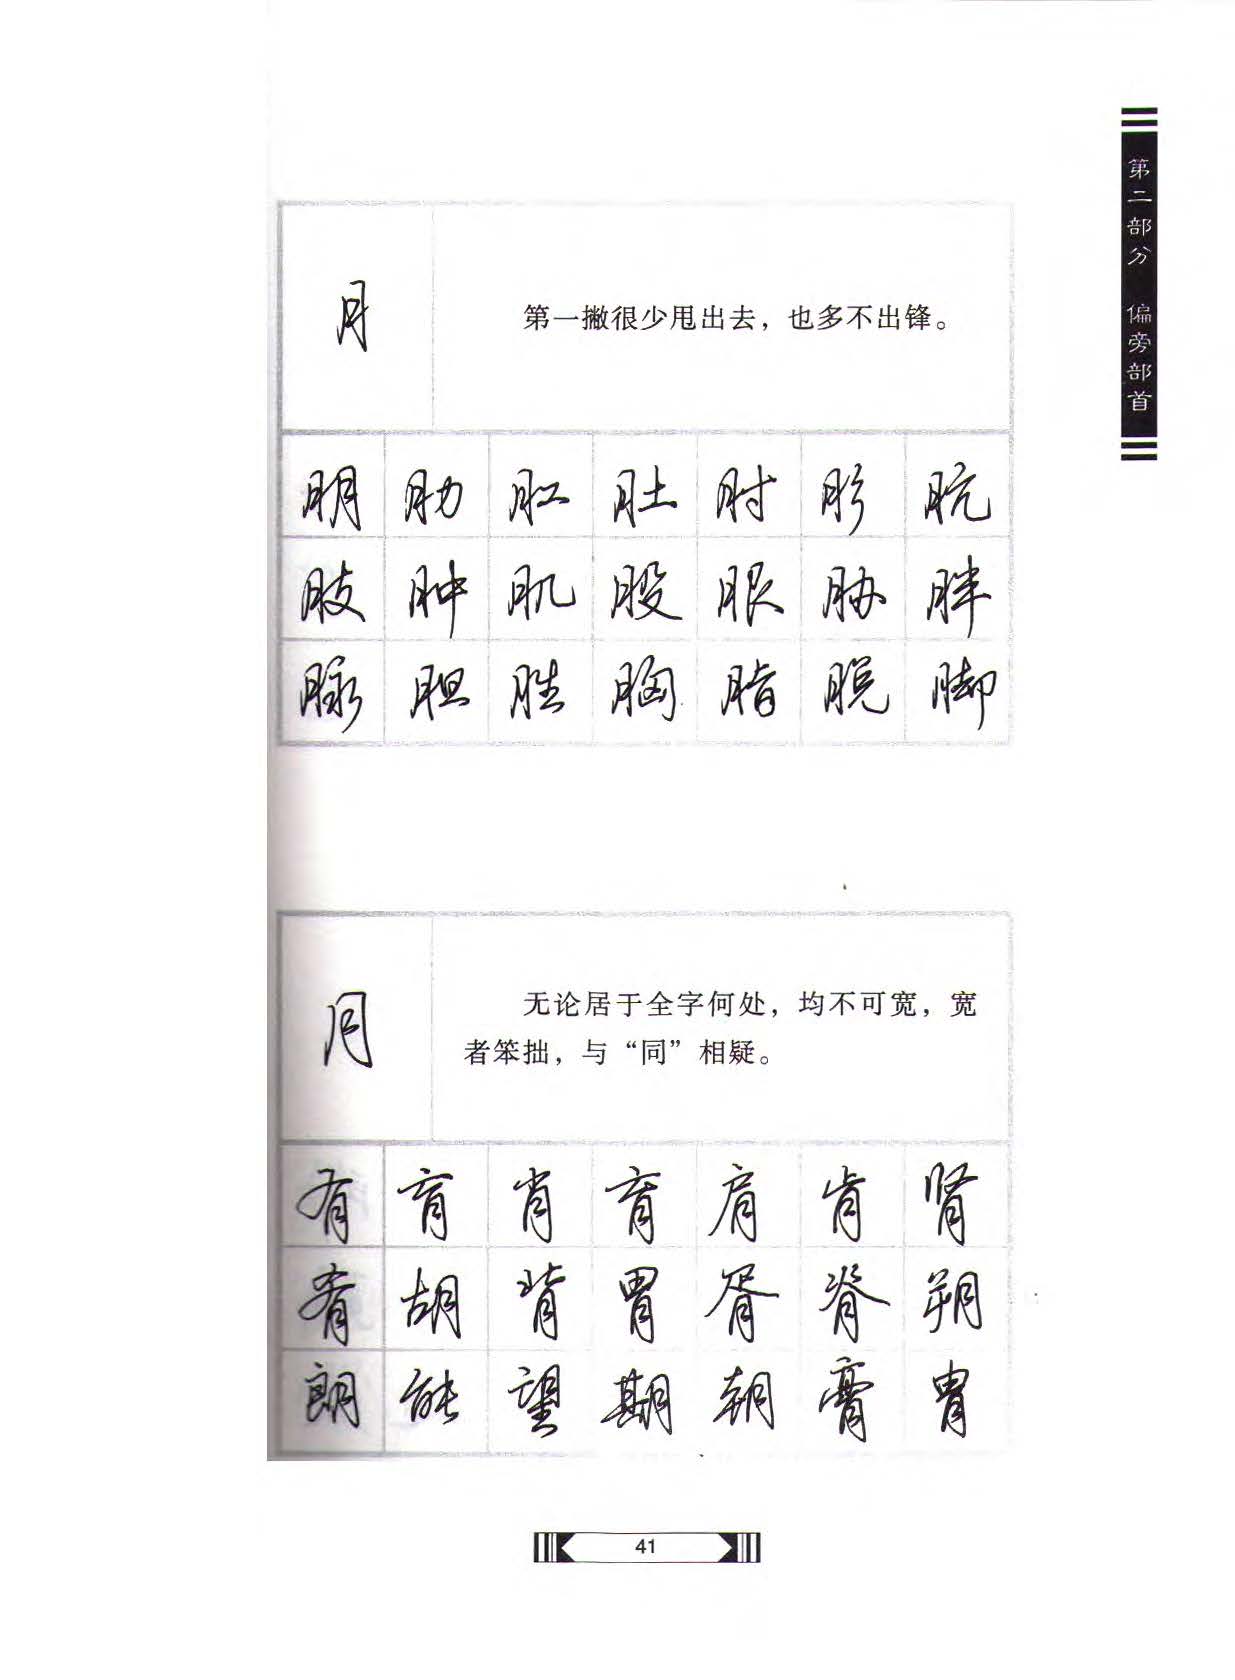 第二部分 偏旁部首
月
第一撇很少甩出去，也多不出锋。
朋 肋 肛 肚 肘 肜 肮
肢 肿 肌 股 腿 胁 胖
脉 胆 胜 胸 脂 脱 脚
月
无论居于全字何处，均不可宽，宽
者笨拙，与“同”相疑。
有 肓 肖 育 肩 肯 肾
肴 胡 背 胃 胥 脊 朔
朗 能 望 期 朝 膏 胄
41